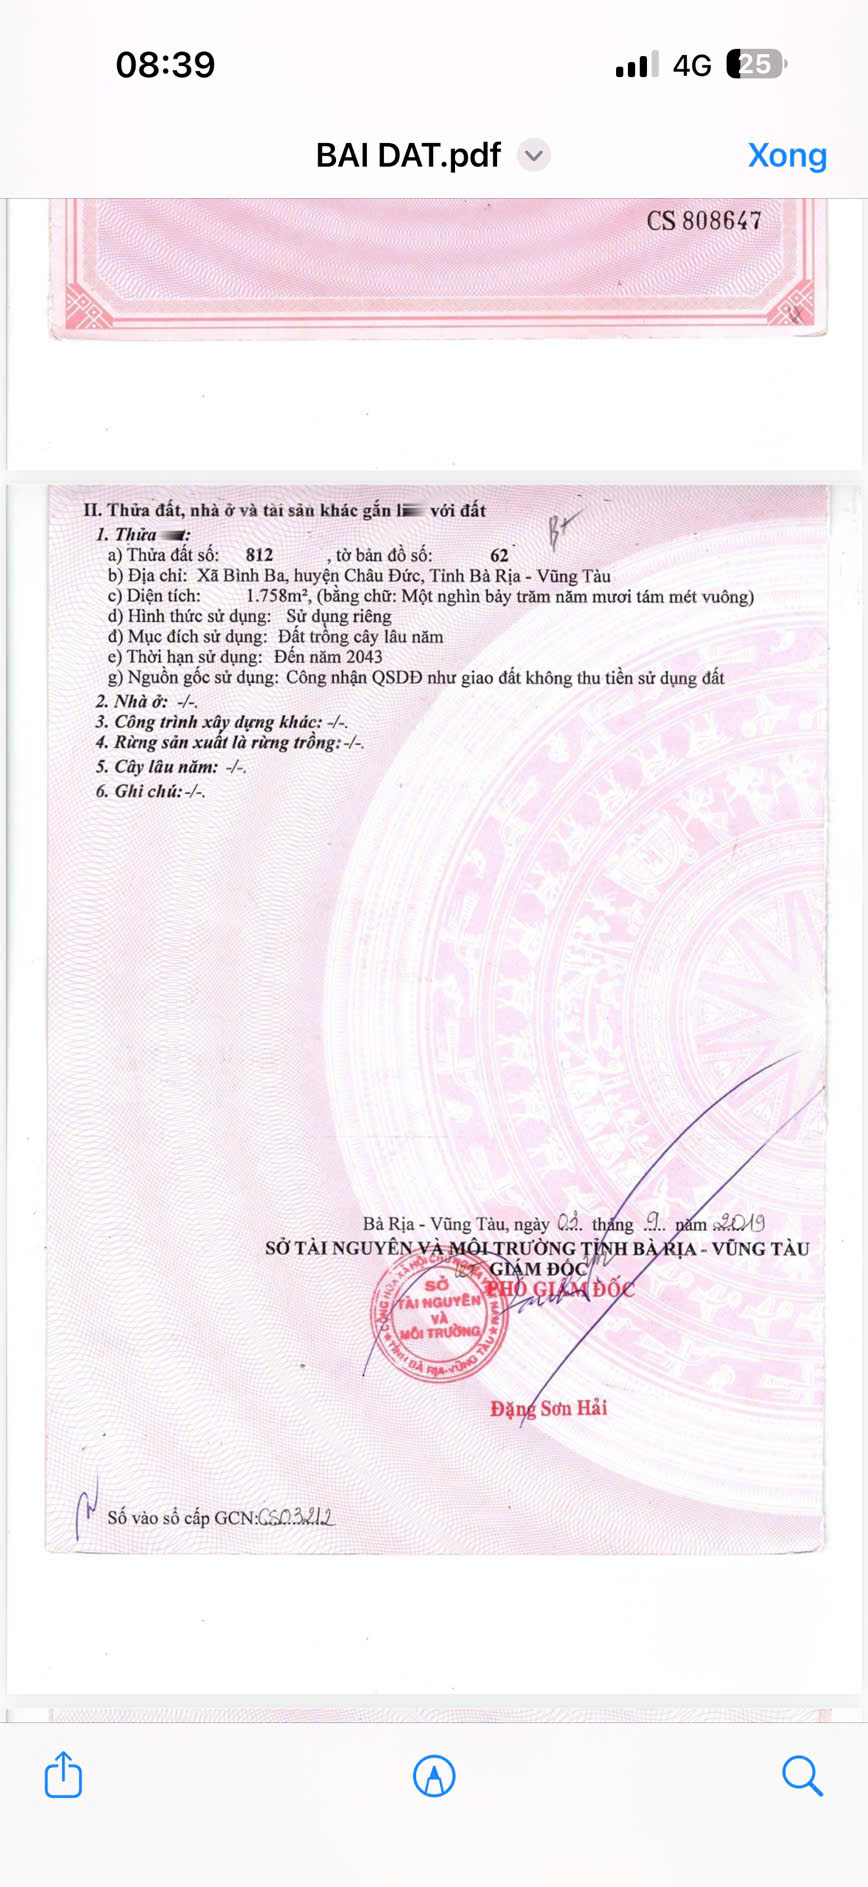 08:39
4G 25
BAI DAT.pdf
Xong
CS 808647
II. Thửa đất, nhà ở và tài sản khác gắn với đất
1. Thửa
a) Thửa đất số: 812 , tờ bản đồ số: 62
b) Địa chỉ: Xã Bình Ba, huyện Châu Đức, Tỉnh Bà Rịa - Vũng Tàu
c) Diện tích: 1.758m², (bằng chữ: Một nghìn bảy trăm năm mươi tám mét vuông)
d) Hình thức sử dụng: Sử dụng riêng
đ) Mục đích sử dụng: Đất trồng cây lâu năm
e) Thời hạn sử dụng: Đến năm 2043
g) Nguồn gốc sử dụng: Công nhận QSDĐ như giao đất không thu tiền sử dụng đất
2. Nhà ở: -/-.
3. Công trình xây dựng khác: -/-.
4. Rừng sản xuất là rừng trồng: -/-.
5. Cây lâu năm: -/-.
6. Ghi chú: -/-.
Bà Rịa - Vũng Tàu, ngày 03 tháng 9 năm 2019
SỞ TÀI NGUYÊN VÀ MÔI TRƯỜNG TỈNH BÀ RỊA - VŨNG TÀU
GIÁM ĐỐC
PHÓ GIÁM ĐỐC
CỘNG HÒA XÃ HỘI CHỦ NGHĨA VIỆT NAM
SỞ
TÀI NGUYÊN
VÀ
MÔI TRƯỜNG
TỈNH BÀ RỊA-VŨNG TÀU
Đặng Sơn Hải
Số vào sổ cấp GCN: CS03212